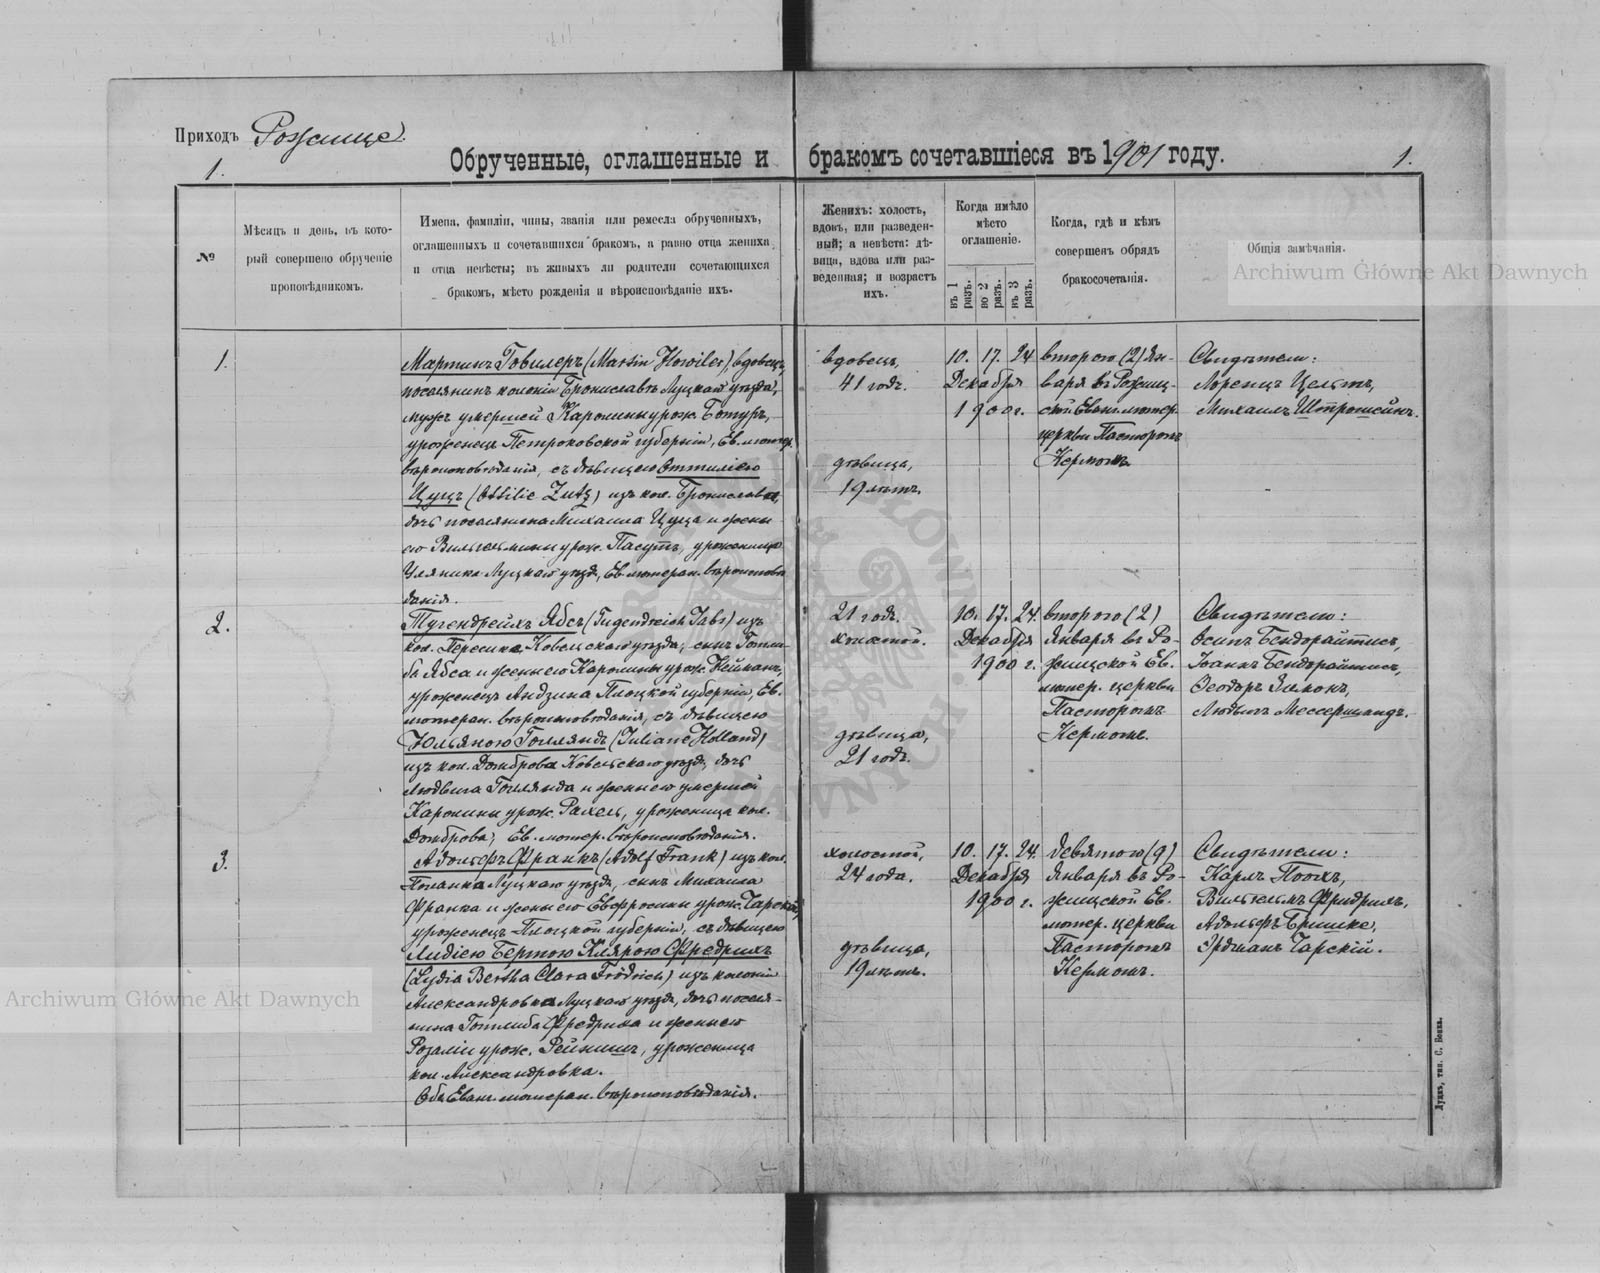 Приходъ Рожище.
1.
Обрученные, оглашенные и бракомъ сочетавшіеся въ 1901 году.
1.
№
Мѣсяцъ и день, въ кото-
рый совершено обрученіе
проповѣдникомъ.
Имена, фамиліи, чины, званія или ремесла обрученныхъ,
оглашенныхъ и сочетавшихся бракомъ, а равно отца жениха
и отца невѣсты; въ живыхъ ли родители сочетающихся
бракомъ, мѣсто рожденія и вѣроисповѣданіе ихъ.
Женихъ: холостъ,
вдовъ, или разведен-
ный; а невѣста: дѣ-
вица, вдова или раз-
веденная; и возрастъ
ихъ.
Когда имѣло
мѣсто
оглашеніе.
въ 1 разъ.
во 2 разъ.
въ 3 разъ.
Когда, гдѣ и кѣмъ
совершенъ обрядъ
бракосочетанія.
Общія замѣчанія.
Archiwum Główne Akt Dawnych
1.
Мартинъ Говилеръ (Martin Howiler), вдовецъ,
поселянинъ колоніи Брониславъ Луцкаго уѣзда,
мужъ умершей Каролины урож. Ботуръ,
уроженецъ Петроковской губерніи, Ев. лютер.
вѣроисповѣданія, съ дѣвицею Оттиліею
Цуцъ (Ottilie Zutz) изъ кол. Брониславъ,
дочь поселянина Михаила Цуца и жены
его Вильгельмины урож. Пасутъ, уроженица
Уляника Луцкаго уѣзда, Ев. лютеран. вѣроиспове
данія.
вдовецъ,
41 годъ.
дѣвица,
19 лѣтъ.
10. 17. 24
Декабря
1900 г.
второго (2) Ян-
варя въ Рожищ-
ской Еван. лютер.
церкви Пасторомъ
Кермомъ.
Свидѣтели:
Лоренцъ Цельтъ,
Михаилъ Штропшейнъ.
2.
Тугендрейхъ Ябсъ (Tugendreich Jabs) изъ
кол. Пересика Ковельскаго уѣзда, сынъ Готли-
ба Ябса и жены его Каролины урож. Нейманъ,
уроженецъ Андзина Плоцкой губерніи, Ев.
лютеран. вѣроисповѣданія, съ дѣвицею
Юльяною Голландъ (Juliane Holland)
изъ кол. Домброва Ковельскаго уѣзда, дочь
Людвига Голланда и жены его умершей
Каролины урож. Рахель, уроженица кол.
Домброва; Ев. лютер. вѣроисповѣданія.
21 годъ.
холостой.
дѣвица,
21 годъ.
10. 17. 24.
Декабря
1900 г.
второго (2)
Января въ Ро-
жищской Ев.
лютер. церкви
Пасторомъ
Кермомъ.
Свидѣтели:
Осипъ Бендорайтисъ,
Іоаннъ Бендорайтисъ,
Ѳеодоръ Зимонъ,
Людвигъ Мессершмидъ.
3.
Адольфъ Франкъ (Adolf Frank) изъ кол.
Поланка Луцкаго уѣзда, сынъ Михаила
Франка и жены его Евфросины урож. Чарской,
уроженецъ Плоцкой губерніи, съ дѣвицею
Лидіею Бертою Клярою Фредрихъ
(Lydia Bertha Clara Frödrich) изъ колоніи
Александровка Луцкаго уѣзда, дочь поселя-
нина Готлиба Фредриха и жены его
Розаліи урож. Рейнишъ, уроженица
кол. Александровка.
Оба Еван. лютеран. вѣроисповѣданія.
холостой,
24 года.
дѣвица,
19 лѣтъ.
10. 17. 24.
Декабря
1900 г.
девятого (9)
Января въ Ро-
жищской Ев.
лютер. церкви
Пасторомъ
Кермомъ.
Свидѣтели:
Карлъ Поохъ,
Вильгельмъ Фридрихъ,
Адольфъ Бришке,
Эрдманъ Чарскій.
Archiwum Główne Akt Dawnych
Луцкъ, тип. С. Бенка.